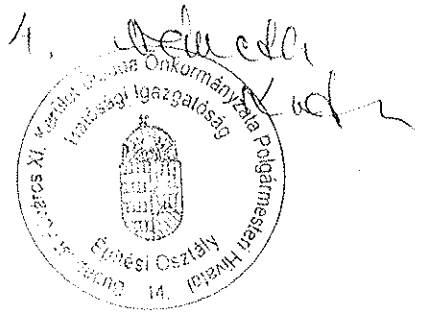 Budapest Főváros XI. Kerület Újbuda Önkormányzata Polgármesteri Hivatal
Hatósági Igazgatóság
Építési Osztály
14.